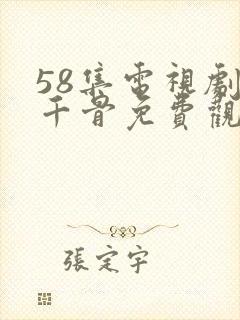 58集電視劇
千骨免費觀
張定宇